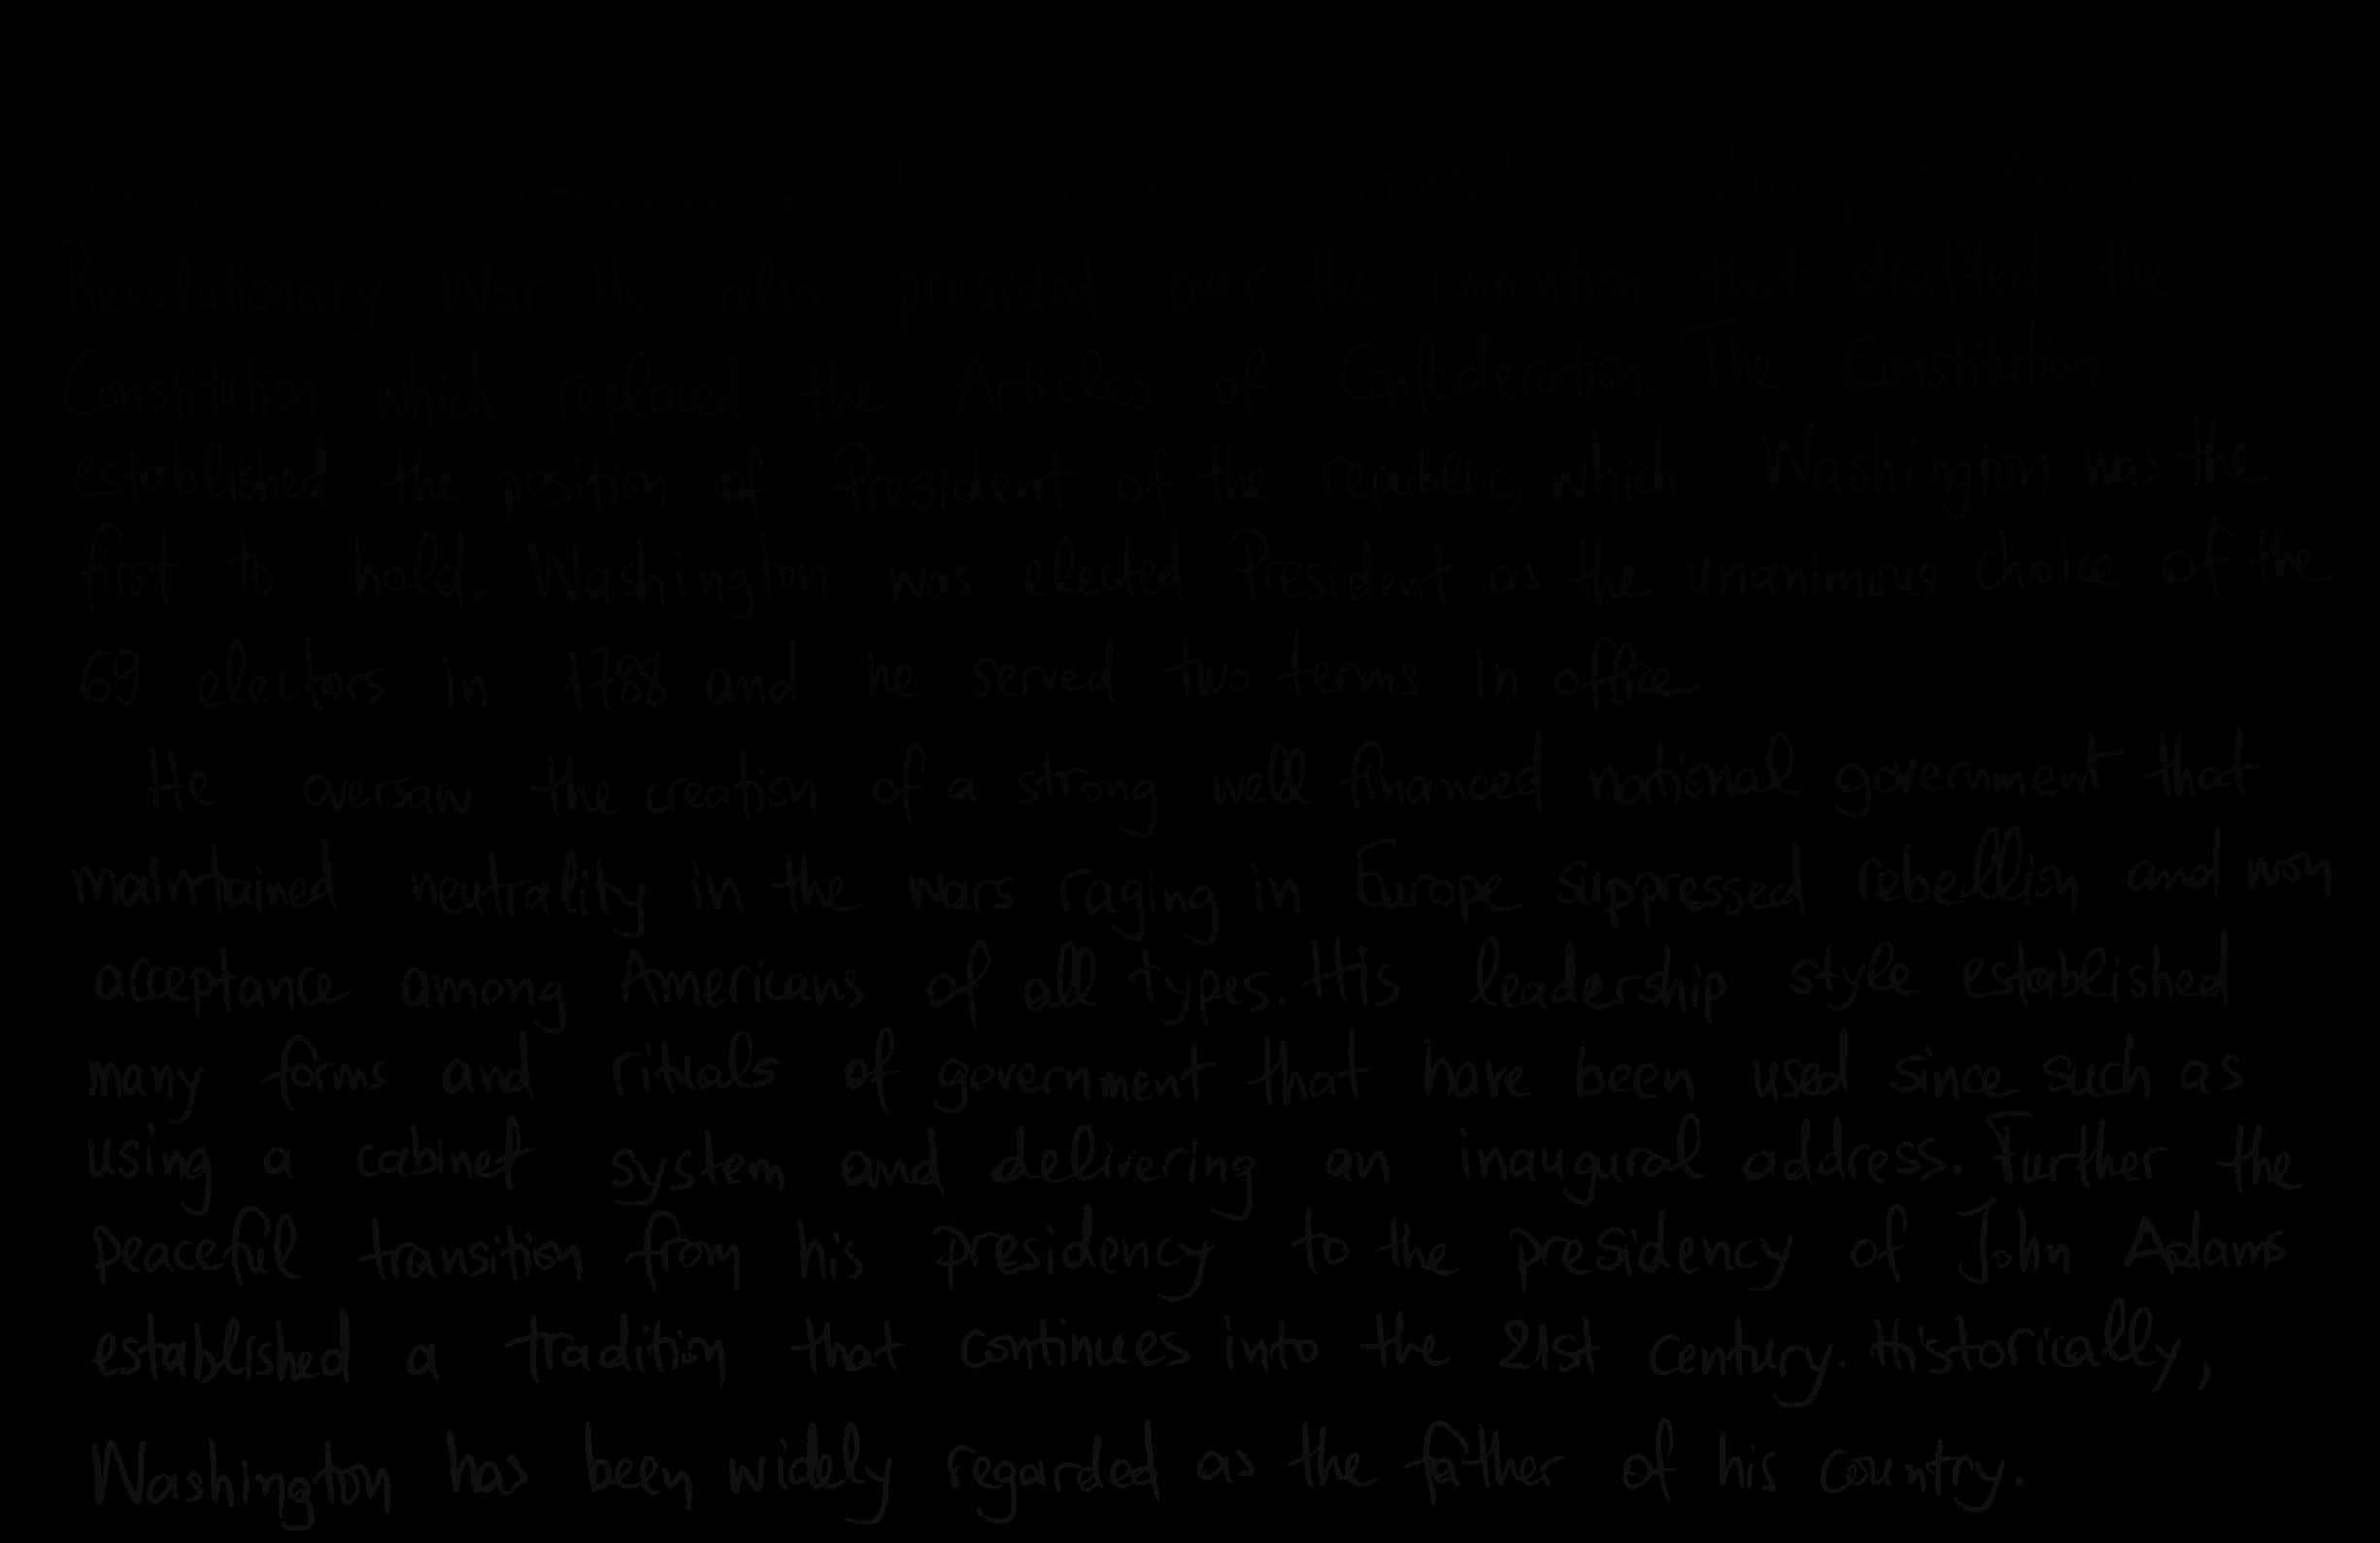 George Washington was one of the Founding Fathers of the United States
serving as the commander in chief of the Continental Army during the American
Revolutionary War. He also presided over the convention that drafted the
Constitution which replaced the Articles of Confederation. The Constitution
established the position of President of the republic, which Washington was the
first to hold. Washington was elected President as the unanimous choice of the
69 electors in 1788 and he served two terms in office.
He oversaw the creation of a strong well financed national government that
maintained neutrality in the wars raging in Europe suppressed rebellion and won
acceptance among Americans of all types. His leadership style established
many forms and rituals of government that have been used since such as
using a cabinet system and delivering an inaugural address. Further the
peaceful transition from his presidency to the presidency of John Adams
established a tradition that continues into the 21st century. Historically,
Washington has been widely regarded as the father of his country.